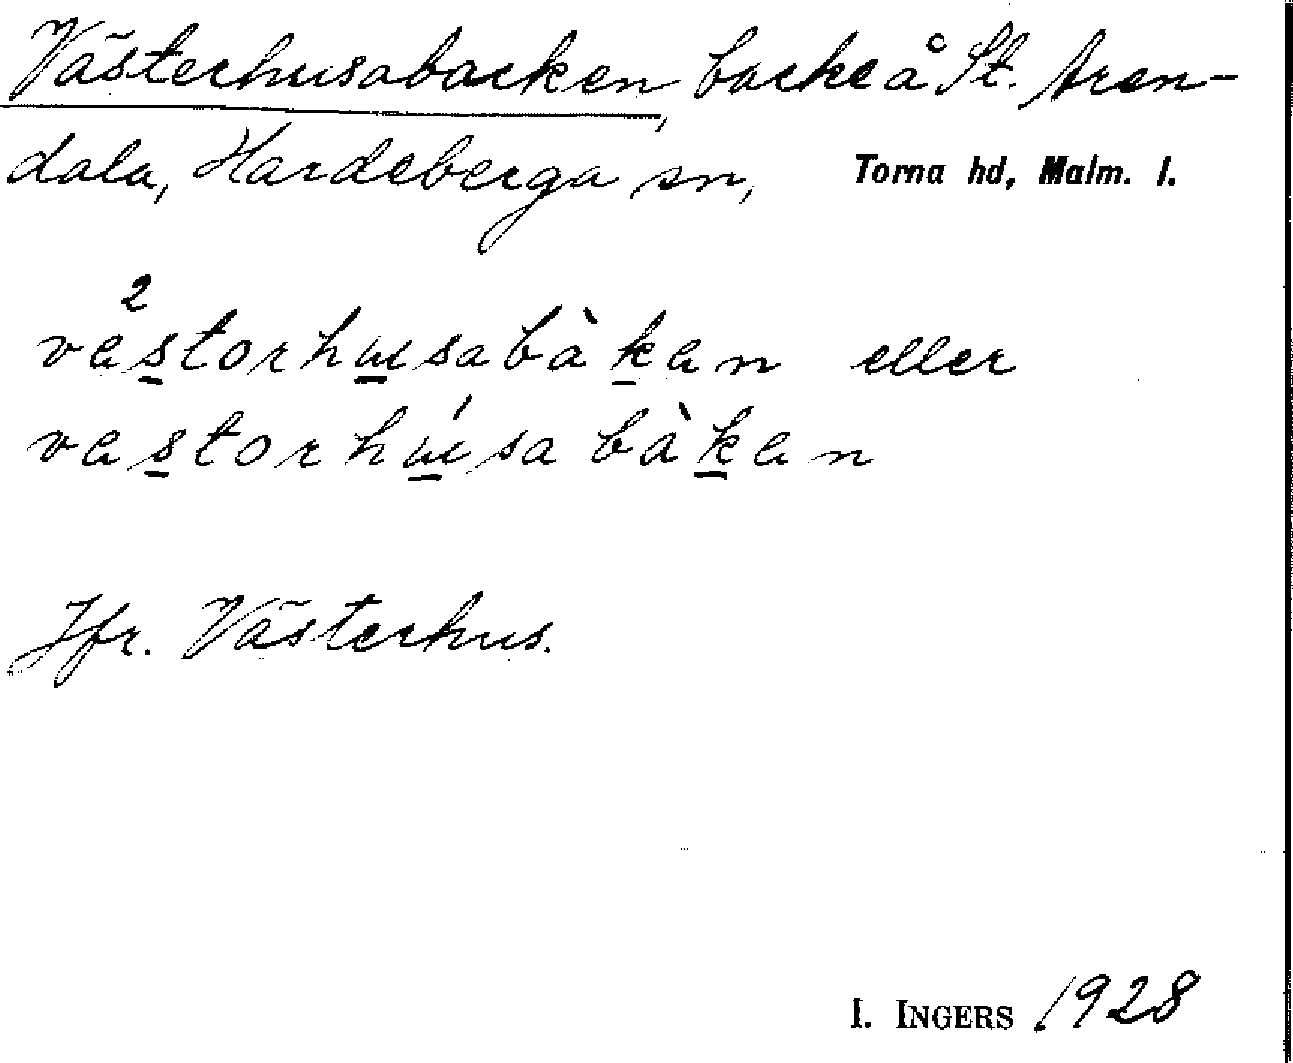 Västerhusabacken, backe å St. Aren-
dala, Hardeberga sn, Torna hd, Malm. l.
va²storhɯsabàkan eller
vastorhɯ́sabàkan
Jfr. Västerhus.
I. INGERS 1928